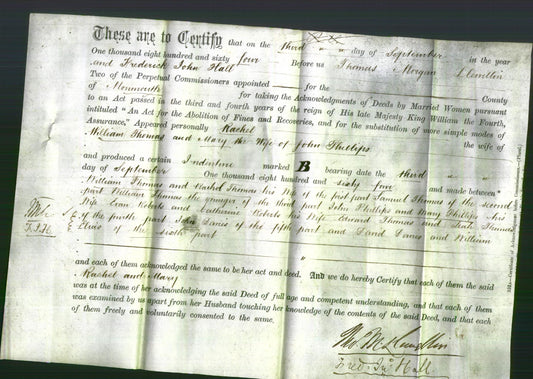 These are to Certify that on the third day of September in the year
One thousand eight hundred and sixty four Before us Thomas Morgan Llewellin
and Frederick John Hall
Two of the Perpetual Commissioners appointed for the County
of Monmouth for taking the Acknowledgments of Deeds by Married Women pursuant
to an Act passed in the third and fourth years of the reign of His late Majesty King William the Fourth,
intituled "An Act for the Abolition of Fines and Recoveries, and for the substitution of more simple modes of
Assurance," Appeared personally Rachel the wife of
William Thomas and Mary the Wife of John Phillips
and produced a certain Indenture marked B bearing date the third
day of September One thousand eight hundred and sixty four and made between
William Thomas and Rachel Thomas his Wife of the first part Samuel Thomas of the second
part William Thomas the younger of the third part John Phillips and Mary Phillips his
Wife Evan Roberts and Catharine Roberts his Wife Edward Thomas and Thomas
of the fourth part of the fifth part and David and William
of the sixth part
and each of them acknowledged the same to be her act and deed. And we do hereby Certify that each of them the said
Rachel and Mary
was at the time of her acknowledging the said Deed of full age and competent understanding, and that each of them
was examined by us apart from her Husband touching her knowledge of the contents of the said Deed, and that each
of them freely and voluntarily consented to the same.
Tho M Llewellin
Fred Jno Hall